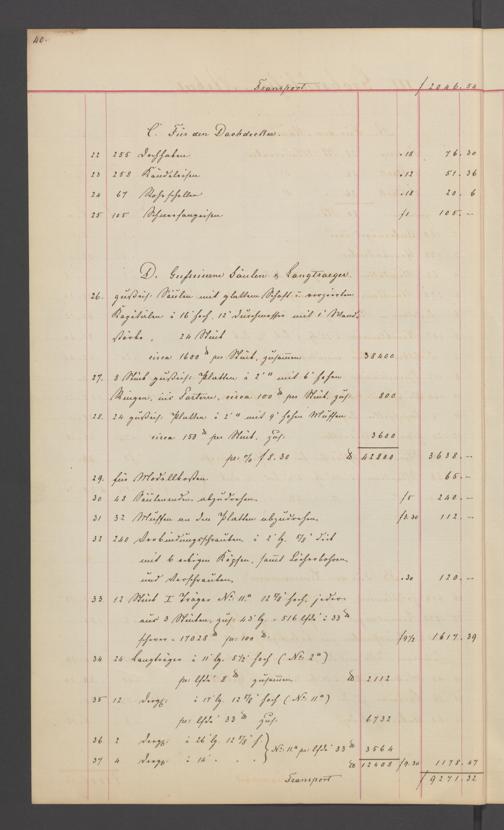 40.
Transport f 2046.54
C. Für den Dachdecker.
22 255 Dachhaken -.18 76.30
23 258 Kändeleisen -.12 51.36
24 67 Rohrschellen -.18 20.6
25 105 Schneefangeisen f 1 105.-
D. Gußeiserne Säulen & Langtraeger.
26. gußeis. Säulen mit glattem Schaft u. verzierten
Kapitälen à 16' hoch, 12" Durchmesser mit 1" Wand-
stärke, 24 Stück
circa 1600 ℔ per Stück, zusammen 38400
27. 8 Stück gußeis. Platten à 2' mit 6" hohen
Ringen, circa 100 ℔ per Stück, zus. 800
28. 24 gußeis. Platten à 2' mit 9" hohen Muffen
circa 150 ℔ per Stück, zus. 3600
per % f 8.30 ℔ 42800 3638.-
29. für Modellkosten 65.-
30 48 Säulenenden abzudrehen f 5 240.-
31 32 Muffen an den Platten abzudrehen f 3.30 112.-
32 240 Verbindungsschrauben à 2" lg. 7/8" dick
mit 6 eckigen Köpfen, samt Löcherbohren
und Verschrauben, -.30 120.-
33 12 Stück I Träger No. 11a 12 5/8" hoch, jeder
aus 3 Stücken, zus. 43' lg. = 516 lfds à 33 ℔
schwer = 17028 ℔ per 100 ℔ f 9 1/2 1617.39
34 24 Langträger à 11' lg. 5 1/2" hoch (No. 2a)
per lfds 8 ℔ zusammen ℔ 2112
35 12 Dergl. à 17' lg. 12 5/8" hoch (No. 11a)
per lfds 33 ℔ zus. 6732
36 2 Dergl. à 26' lg. 12 5/8" h. } No. 11a per lfds 33 ℔ 3564
37 4 Dergl. à 14' " " ℔ 12408 f 9.30 1178.47
Transport f 9271.32